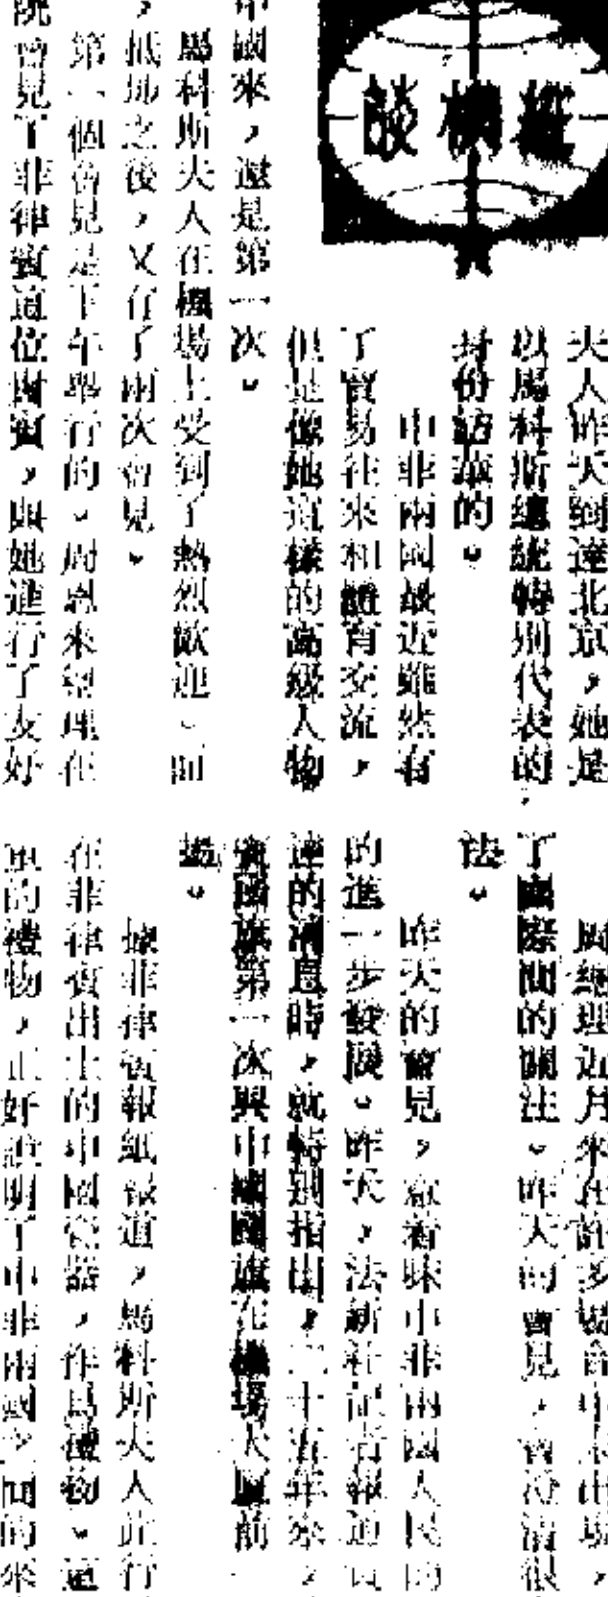 縱橫談
夫人昨天到達北京，她是
以馬科斯總統特別代表的
身份訪華的。
中非兩國最近雖然有
了貿易往來和體育交流，
但是像她這樣的高級人物
中國來，還是第一次。
馬科斯夫人在機場上受到了熱烈歡迎。而
，抵埗之後，又有了兩次會見。
第一個會見是下午舉行的。周恩來總理在
院會見了菲律賓這位貴賓，與她進行了友好
周總理近月來在許多場合中未出場，
了國際間的關注。昨天的會見，會澄清很
法。
昨天的會見，意味中非兩國人民的
的進一步發展。昨天，法新社記者報道
達的消息時，就特別指出，二十五年來，
賓國旗第一次與中國國旗在機場大廈前
揚。
據菲律賓報紙報道，馬科斯夫人此行
在菲律賓出土的中國瓷器，作爲禮物。這
的禮物，正好證明了中非兩國之間的來